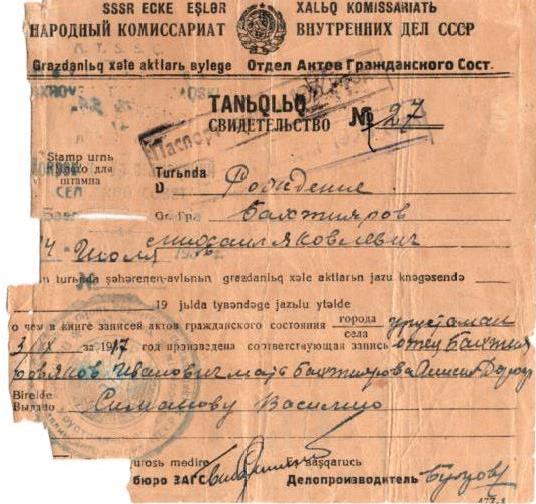 SSSR ECKE EŞLƏR XALЬQ KOMISSARIATЬ
НАРОДНЫЙ КОМИССАРИАТ ВНУТРЕННИХ ДЕЛ СССР
Grazdanlьq xəle aktlarь вylege Отдел Актов Гражданского Сост.
TANЬQLЬQ
СВИДЕТЕЛЬСТВО № 27
Паспор
Stamp urnь
для
штампа
Turьnda
О Рождение
Gr. Гра Бахтияров
14 Июля Михаил Яковлевич
turьnda şəhərenen-avlьnьn grazdanlьq xəle aktlarьn jazu knəgəsendə
19 jьlda tyвəndəge jazьlu ytəlde
о чем в книге записей актов гражданского состояния города
села
3/IX за 1917 год произведена соответствующая запись отец Бахтия
ров Яков Иванович мать Бахтиярова
Birelde
Выдано Симанову Василию
mədire Eş başqarucь
бюро ЗАГС Делопроизводитель